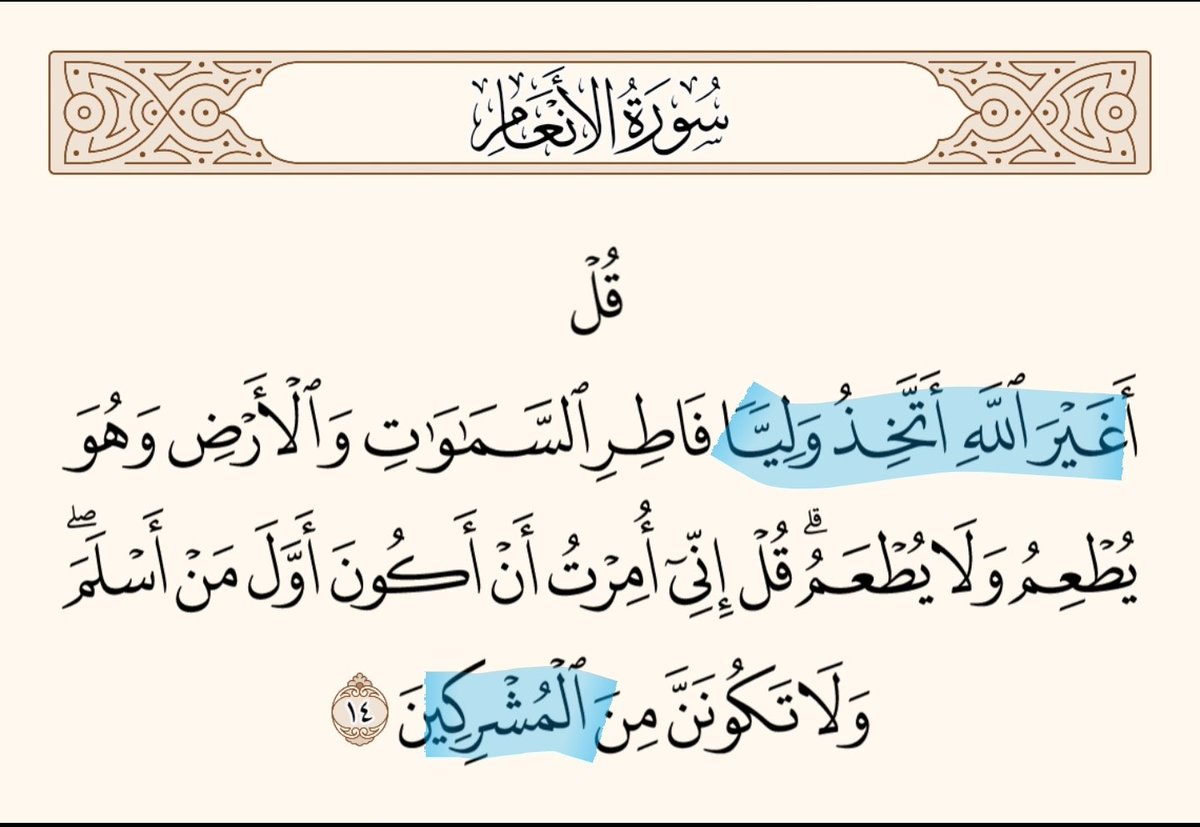 سُورَةُ الأَنْعَامِ
قُلۡ
أَغَيۡرَ ٱللَّهِ أَتَّخِذُ وَلِيّٗا فَاطِرِ ٱلسَّمَٰوَٰتِ وَٱلۡأَرۡضِ وَهُوَ
يُطۡعِمُ وَلَا يُطۡعَمُۗ قُلۡ إِنِّيٓ أُمِرۡتُ أَنۡ أَكُونَ أَوَّلَ مَنۡ أَسۡلَمَۖ
وَلَا تَكُونَنَّ مِنَ ٱلۡمُشۡرِكِينَ ١٤